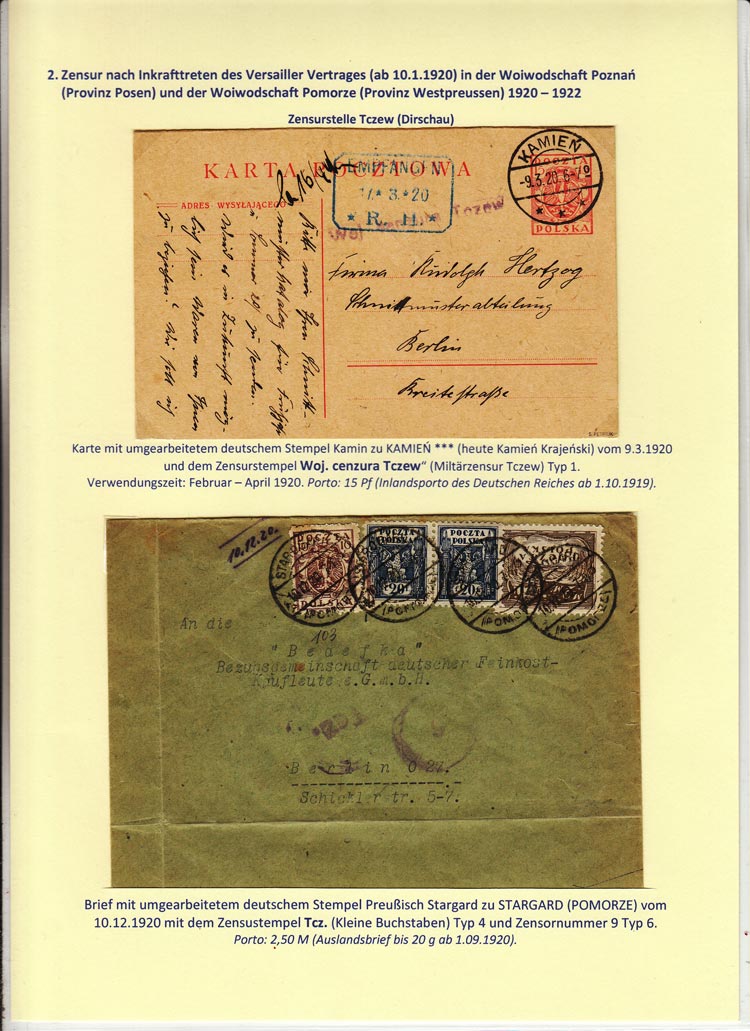 2. Zensur nach Inkrafttreten des Versailler Vertrages (ab 10.1.1920) in der Woiwodschaft Poznań
(Provinz Posen) und der Woiwodschaft Pomorze (Provinz Westpreussen) 1920 – 1922
Zensurstelle Tczew (Dirschau)
KARTA POCZTOWA
ADRES WYSYŁAJĄCEGO
EMPFANGEN
17* 3 *20
* R. H. *
Woj. cenzura Tczew
KAMIEŃ
-9.3.20. 6-7
* * *
POCZTA
POLSKA
Bitte mir Ihren Schnitt-
musterkatalog für
Sommer 20 zu senden.
Wird es in Zukunft mög-
lich sein Waren von Ihnen
zu beziehen?
Firma Rudolph Hertzog
Schnittmusterabteilung
Berlin
Breitestraße
Karte mit umgearbeitetem deutschem Stempel Kamin zu KAMIEŃ *** (heute Kamień Krajeński) vom 9.3.1920
und dem Zensurstempel Woj. cenzura Tczew“ (Miltärzensur Tczew) Typ 1.
Verwendungszeit: Februar – April 1920. Porto: 15 Pf (Inlandsporto des Deutschen Reiches ab 1.10.1919).
10.12.20.
POCZTA
POLSKA
20
POCZTA
POLSKA
20
STARGARD
(POMORZE)
An die
103
"Bedefka"
Bezugsgemeinschaft deutscher Feinkost-
Kaufleute e.G.m.b.H.
Tcz.
Berlin O 27.
Schickler str. 5-7.
Brief mit umgearbeitetem deutschem Stempel Preußisch Stargard zu STARGARD (POMORZE) vom
10.12.1920 mit dem Zensustempel Tcz. (Kleine Buchstaben) Typ 4 und Zensornummer 9 Typ 6.
Porto: 2,50 M (Auslandsbrief bis 20 g ab 1.09.1920).